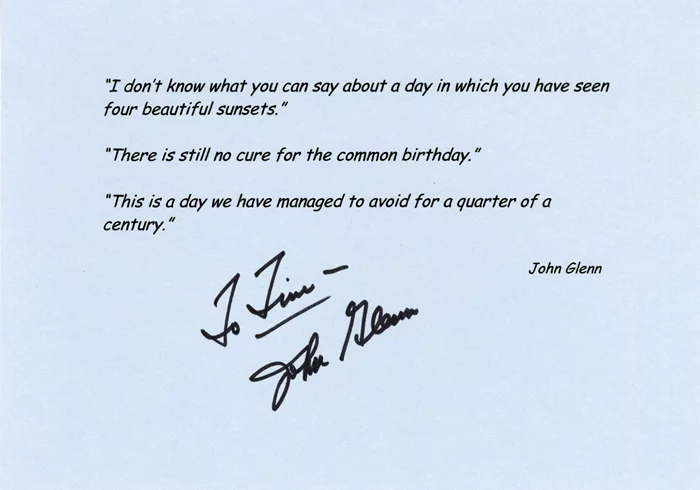 "I don't know what you can say about a day in which you have seen
four beautiful sunsets."
"There is still no cure for the common birthday."
"This is a day we have managed to avoid for a quarter of a
century."
John Glenn
To Tim –
John Glenn